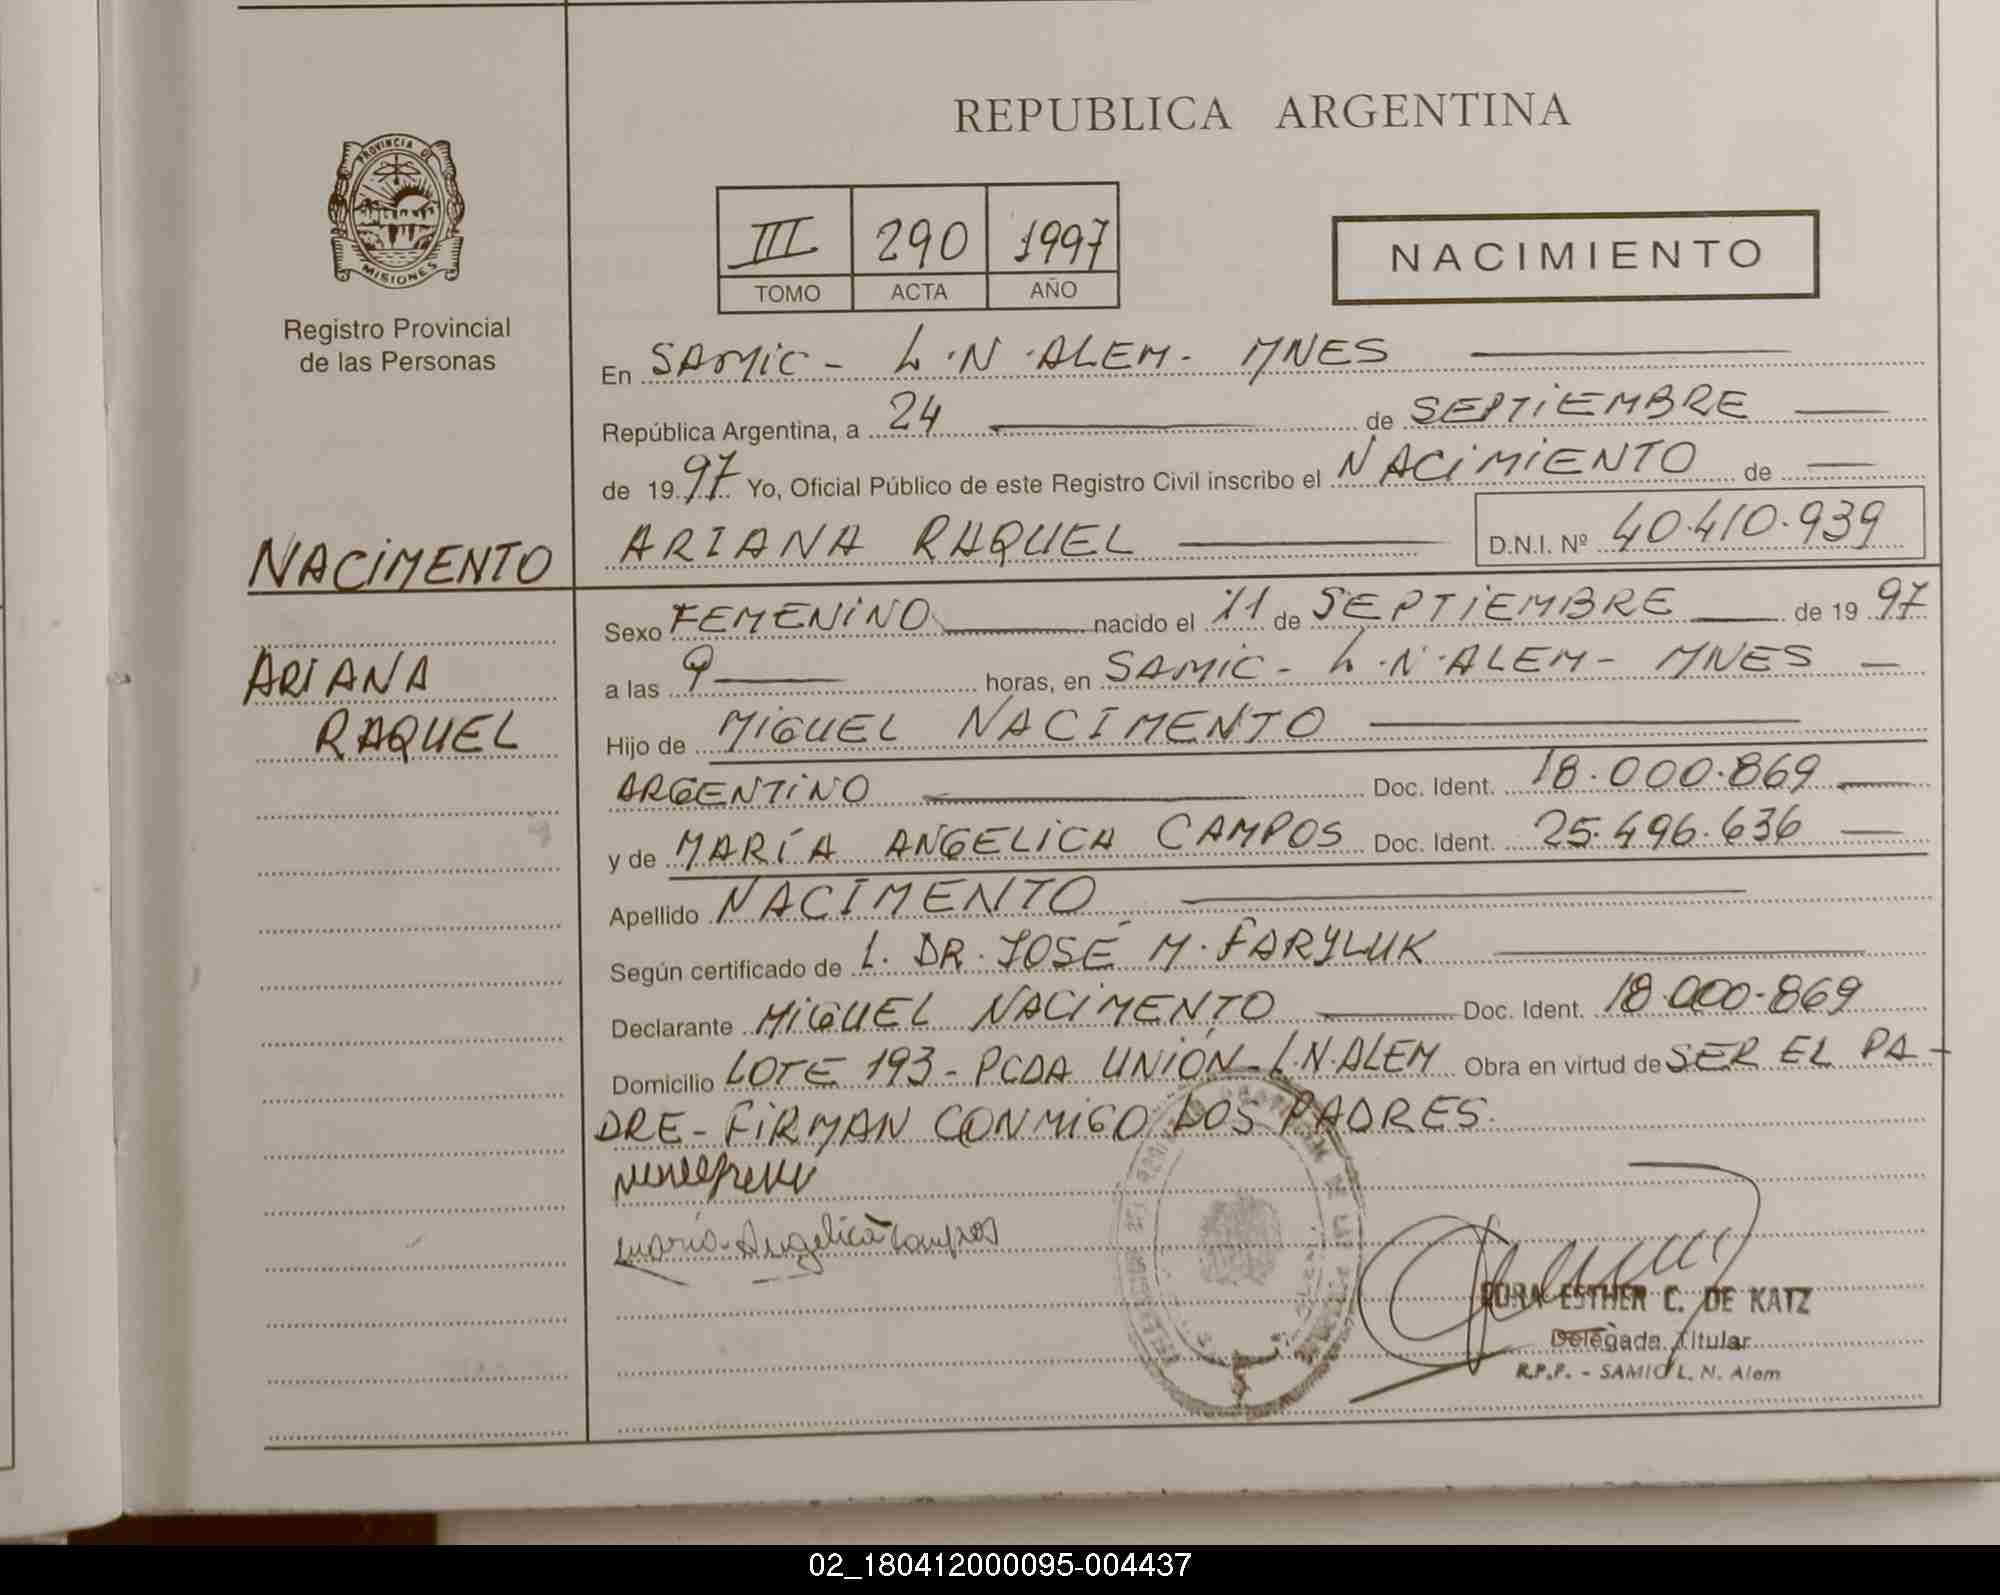 REPUBLICA ARGENTINA
PROVINCIA DE
MISIONES
Registro Provincial
de las Personas
III 290 1997
TOMO ACTA AÑO
NACIMIENTO
En SAMIC - L.N.ALEM - MNES
República Argentina, a 24 de SEPTIEMBRE
de 1997 Yo, Oficial Público de este Registro Civil inscribo el NACIMIENTO de
ARIANA RAQUEL D.N.I. Nº 40.410.939
NACIMENTO
ARIANA
RAQUEL
Sexo FEMENINO nacido el 11 de SEPTIEMBRE de 1997
a las 9 horas, en SAMIC - L.N.ALEM - MNES
Hijo de MIGUEL NACIMENTO
ARGENTINO Doc. Ident. 18.000.869
y de MARÍA ANGELICA CAMPOS Doc. Ident. 25.496.636
Apellido NACIMENTO
Según certificado de L. DR. JOSÉ M. FARYLUK
Declarante MIGUEL NACIMENTO Doc. Ident. 18.000.869
Domicilio LOTE 193 - PCDA UNIÓN - L.N.ALEM Obra en virtud de SER EL PA-
DRE - FIRMAN CONMIGO LOS PADRES.
María Angelica Campos
DORA ESTHER C. DE KATZ
Delegada Titular
R.P.P. - SAMIC L. N. Alem
02_180412000095-004437